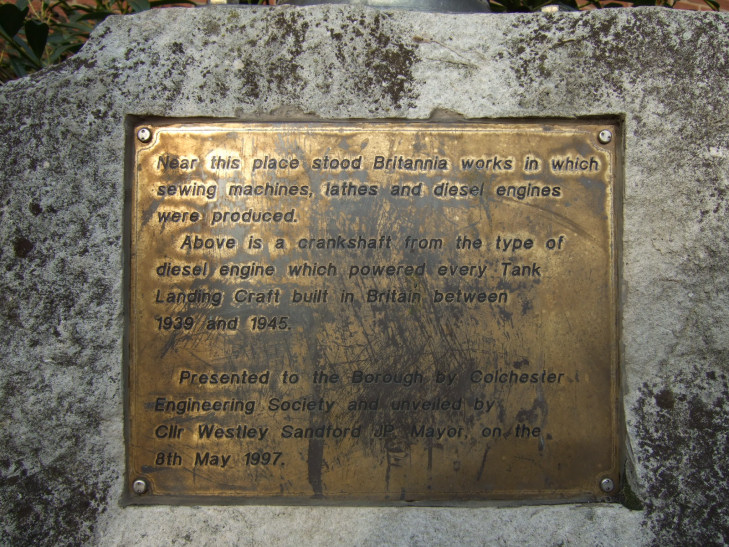 Near this place stood Britannia works in which
sewing machines, lathes and diesel engines
were produced.
Above is a crankshaft from the type of
diesel engine which powered every Tank
Landing Craft built in Britain between
1939 and 1945.
Presented to the Borough by Colchester
Engineering Society and unveiled by
Cllr Westley Sandford JP. Mayor, on the
8th May 1997.